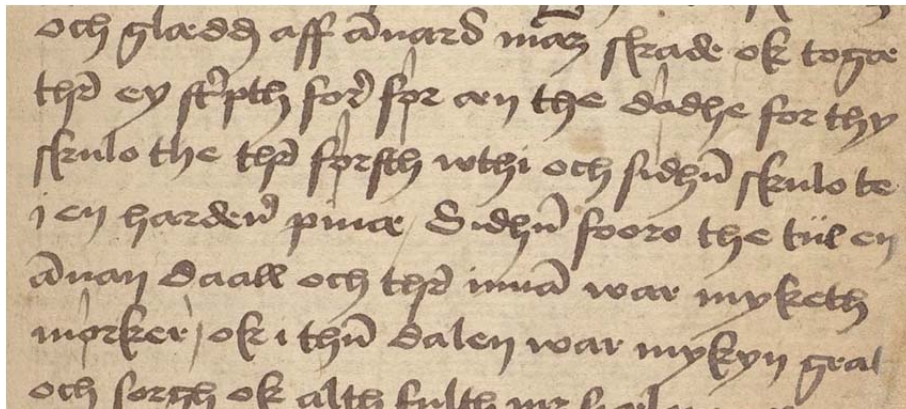 och glædḍ aff ānars mārz skrade ok togæ
thr̄ ey str̄pth for̄ før æn the dødhe for thy
skulo the thr̄ førsth wthi och sidhn̄ skulo te
j en harden̄ pinæ / Sidhn̄ fooro the tiil en
ānan daall och thr̄ innā war myketh
mørker / ok i thn̄ dalen war mykyn grat
och sorgh ok alth fulth